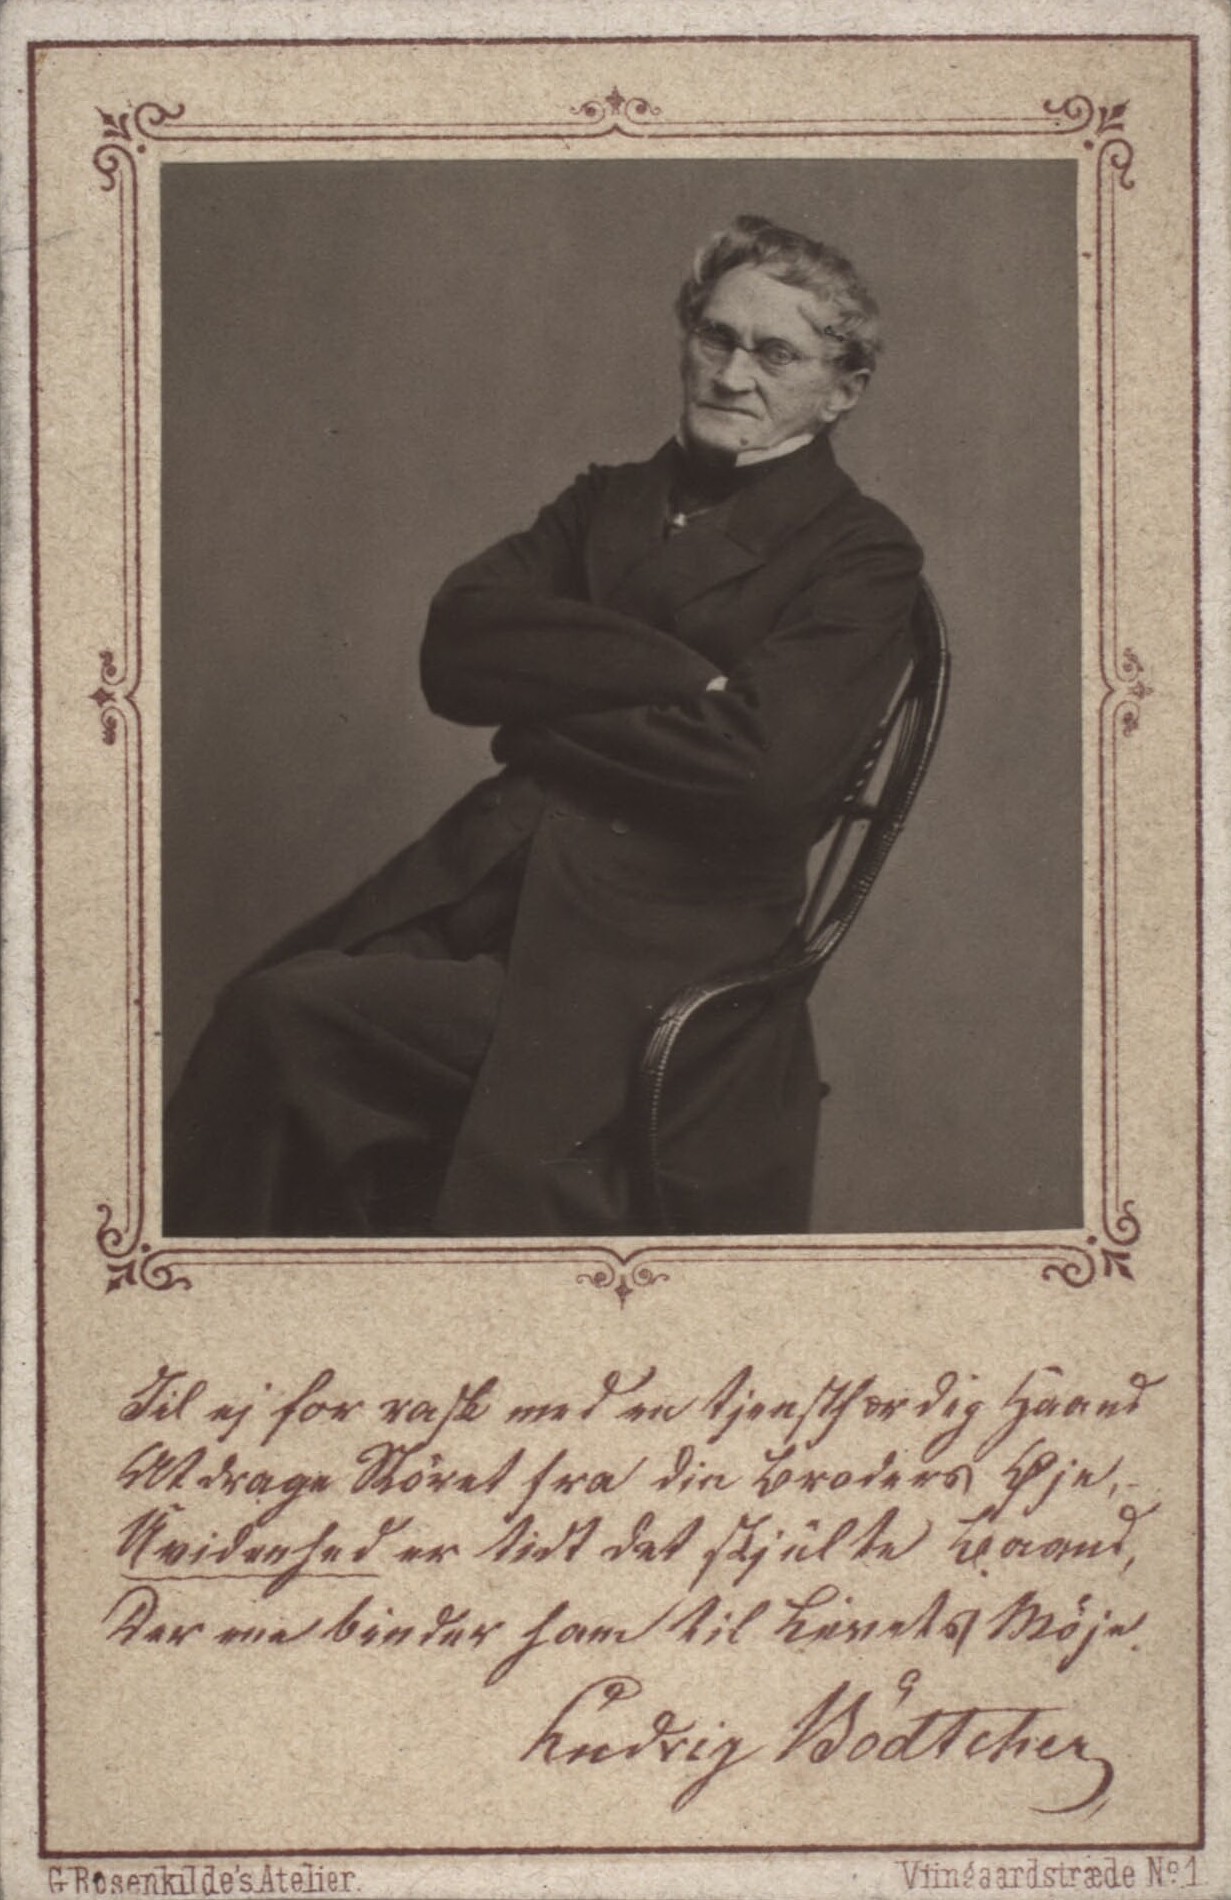 Til ej for rask med en tjenstfærdig Haand
At drage Slöret fra din Broders Øje,
Uvidenhed er tidt det skjulte Baand,
Der ene binder ham til Livets Möje.
Ludvig Bödtcher
G. Rosenkilde's Atelier.
Viingaardstræde No. 1